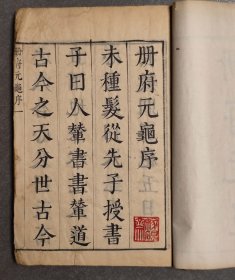 册府元龜序
未種髮從先子授書
子曰人輦書書輦道
古今之天分世古今
册府元龜序一